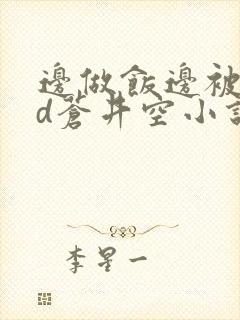 邊做飯邊被
d蒼井空小說
李星一